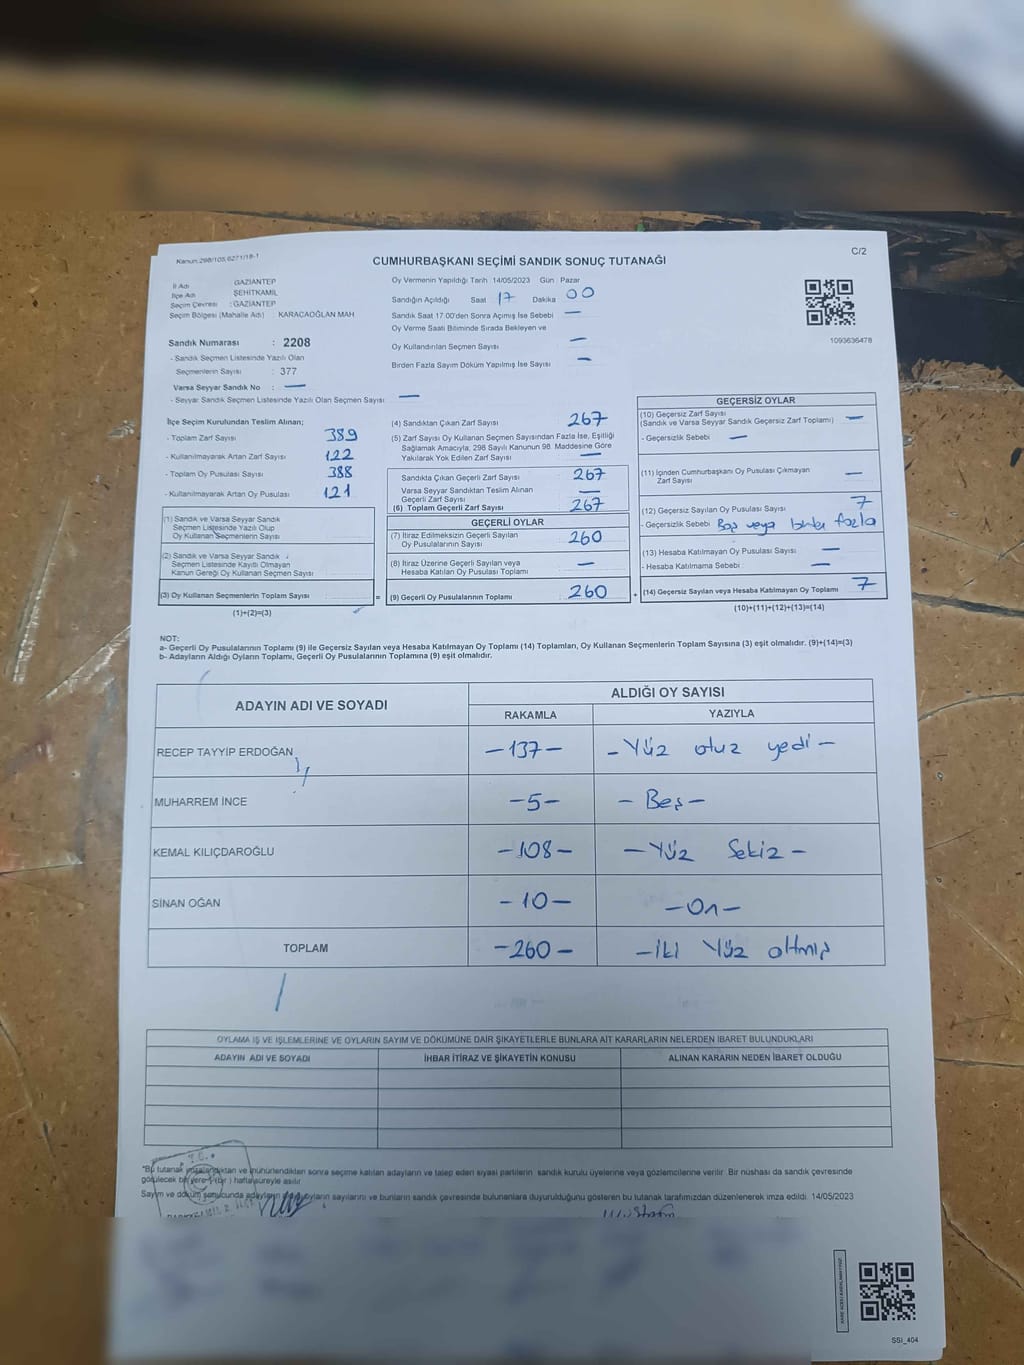 Kanun:298/105,6271/18-1
C/2
CUMHURBAŞKANI SEÇİMİ SANDIK SONUÇ TUTANAĞI
İl Adı : GAZİANTEP
İlçe Adı : ŞEHİTKAMİL
Seçim Çevresi : GAZİANTEP
Seçim Bölgesi (Mahalle Adı) : KARACAOĞLAN MAH
Sandık Numarası : 2208
- Sandık Seçmen Listesinde Yazılı Olan
Seçmenlerin Sayısı : 377
Varsa Seyyar Sandık No : —
- Seyyar Sandık Seçmen Listesinde Yazılı Olan Seçmen Sayısı : —
Oy Vermenin Yapıldığı Tarih :14/05/2023 Gün : Pazar
Sandığın Açıldığı Saat 17 Dakika 00
Sandık Saat 17.00'den Sonra Açımış İse Sebebi —
Oy Verme Saati Bitiminde Sırada Bekleyen ve
Oy Kullandırılan Seçmen Sayısı —
Birden Fazla Sayım Döküm Yapılmış İse Sayısı —
1093636478
İlçe Seçim Kurulundan Teslim Alınan;
- Toplam Zarf Sayısı 389
- Kullanılmayarak Artan Zarf Sayısı 122
- Toplam Oy Pusulası Sayısı 388
- Kullanılmayarak Artan Oy Pusulası 121
(1) Sandık ve Varsa Seyyar Sandık
Seçmen Listesinde Yazılı Olup
Oy Kullanan Seçmenlerin Sayısı
(2) Sandık ve Varsa Seyyar Sandık
Seçmen Listesinde Kayıtlı Olmayan
Kanun Gereği Oy Kullanan Seçmen Sayısı
(3) Oy Kullanan Seçmenlerin Toplam Sayısı
(1)+(2)=(3)
(4) Sandıktan Çıkan Zarf Sayısı 267
(5) Zarf Sayısı Oy Kullanan Seçmen Sayısından Fazla İse, Eşitliği
Sağlamak Amacıyla, 298 Sayılı Kanunun 98. Maddesine Göre
Yakılarak Yok Edilen Zarf Sayısı —
Sandıkta Çıkan Geçerli Zarf Sayısı 267
Varsa Seyyar Sandıktan Teslim Alınan
Geçerli Zarf Sayısı —
(6) Toplam Geçerli Zarf Sayısı 267
GEÇERLİ OYLAR
(7) İtiraz Edilmeksizin Geçerli Sayılan
Oy Pusulalarının Sayısı 260
(8) İtiraz Üzerine Geçerli Sayılan veya
Hesaba Katılan Oy Pusulası Toplamı —
= (9) Geçerli Oy Pusulalarının Toplamı 260
GEÇERSİZ OYLAR
(10) Geçersiz Zarf Sayısı
(Sandık ve Varsa Seyyar Sandık Geçersiz Zarf Toplamı) —
- Geçersizlik Sebebi —
(11) İçinden Cumhurbaşkanı Oy Pusulası Çıkmayan
Zarf Sayısı —
(12) Geçersiz Sayılan Oy Pusulası Sayısı 7
- Geçersizlik Sebebi Boş veya birden fazla
(13) Hesaba Katılmayan Oy Pusulası Sayısı —
- Hesaba Katılmama Sebebi —
+ (14) Geçersiz Sayılan veya Hesaba Katılmayan Oy Toplamı 7
(10)+(11)+(12)+(13)=(14)
NOT:
a- Geçerli Oy Pusulalarının Toplamı (9) ile Geçersiz Sayılan veya Hesaba Katılmayan Oy Toplamı (14) Toplamları, Oy Kullanan Seçmenlerin Toplam Sayısına (3) eşit olmalıdır. (9)+(14)=(3)
b- Adayların Aldığı Oyların Toplamı, Geçerli Oy Pusulalarının Toplamına (9) eşit olmalıdır.
ADAYIN ADI VE SOYADI
ALDIĞI OY SAYISI
RAKAMLA YAZIYLA
RECEP TAYYİP ERDOĞAN —137— —Yüz otuz yedi—
MUHARREM İNCE —5— —Beş—
KEMAL KILIÇDAROĞLU —108— —Yüz Sekiz—
SİNAN OĞAN —10— —On—
TOPLAM —260— —İki Yüz altmış
OYLAMA İŞ VE İŞLEMLERİNE VE OYLARIN SAYIM VE DÖKÜMÜNE DAİR ŞİKAYETLERLE BUNLARA AİT KARARLARIN NELERDEN İBARET BULUNDUKLARI
ADAYIN ADI VE SOYADI İHBAR İTİRAZ VE ŞİKAYETİN KONUSU ALINAN KARARIN NEDEN İBARET OLDUĞU
T.C.
*Bu tutanak imzalandıktan ve mühürlendikten sonra seçime katılan adayların ve talep eden siyasi partilerin sandık kurulu üyelerine veya gözlemcilerine verilir. Bir nüshası da sandık çevresinde
görülecek bir yere 1 (bir) hafta süreyle asılır
Sayım ve döküm sonucunda adayların oyların sayılarını ve bunların sandık çevresinde bulunanlara duyurulduğunu gösteren bu tutanak tarafımızdan düzenlenerek imza edildi. 14/05/2023
Mustafa
SSI_404